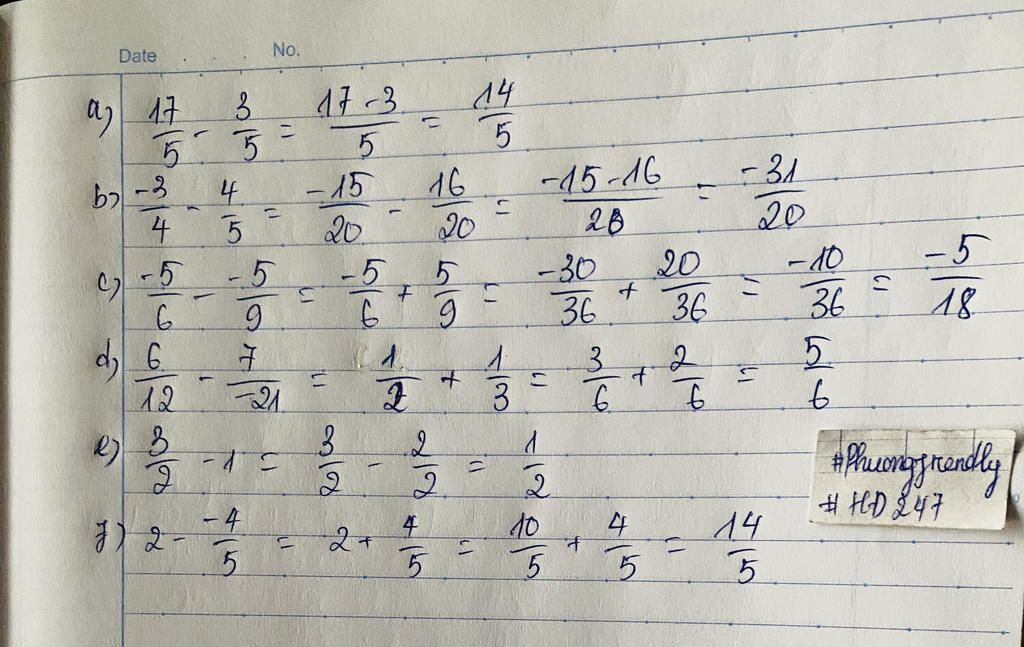 Date No.
a) 17/5 - 3/5 = (17-3)/5 = 14/5
b) -3/4 - 4/5 = -15/20 - 16/20 = (-15-16)/20 = -31/20
c) -5/6 - -5/9 = -5/6 + 5/9 = -30/36 + 20/36 = -10/36 = -5/18
d) 6/12 - 7/-21 = 1/2 + 1/3 = 3/6 + 2/6 = 5/6
e) 3/2 - 1 = 3/2 - 2/2 = 1/2
f) 2 - -4/5 = 2 + 4/5 = 10/5 + 4/5 = 14/5
#Phuongfrendly
# HD247